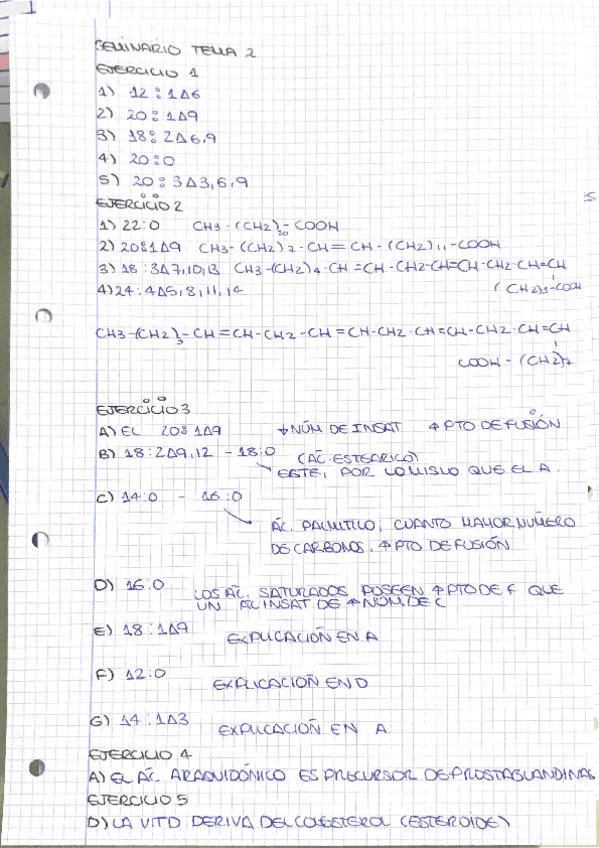 SEMINARIO TEMA 2
EJERCICIO 1
1) 12:1Δ6
2) 20:1Δ9
3) 18:2Δ6,9
4) 20:0
5) 20:3Δ3,6,9
EJERCICIO 2
1) 22:0 CH3-(CH2)20-COOH
2) 20:1Δ9 CH3-(CH2)7-CH=CH-(CH2)11-COOH
3) 18:3Δ7,10,13 CH3-(CH2)4-CH=CH-CH2-CH=CH-CH2-CH=CH
(CH2)3-COOH
4) 24:4Δ5,8,11,14
CH3-(CH2)3-CH=CH-CH2-CH=CH-CH2-CH=CH-CH2-CH=CH
COOH-(CH2)7
EJERCICIO 3
A) EL 20:1Δ9 ↓NÚM DE INSAT ↑PTO DE FUSIÓN
B) 18:2Δ9,12 - 18:0 (ÁC. ESTEÁRICO)
ESTE, POR LO MISMO QUE EL A.
C) 14:0 - 16:0
ÁC. PALMITICO, CUANTO MAYOR NÚMERO
DE CARBONOS, ↑PTO DE FUSIÓN
D) 16:0 LOS ÁC. SATURADOS POSEEN ↑PTO DE F QUE
UN ÁC INSAT DE ↑NÚM DE C
E) 18:1Δ9 EXPLICACIÓN EN A
F) 12:0 EXPLICACIÓN EN D
G) 14:1Δ3 EXPLICACIÓN EN A.
EJERCICIO 4
A) EL ÁC. ARAQUIDÓNICO ES PRECURSOR DE PROSTAGLANDINAS
EJERCICIO 5
D) LA VIT D DERIVA DEL COLESTEROL (ESTEROIDE)